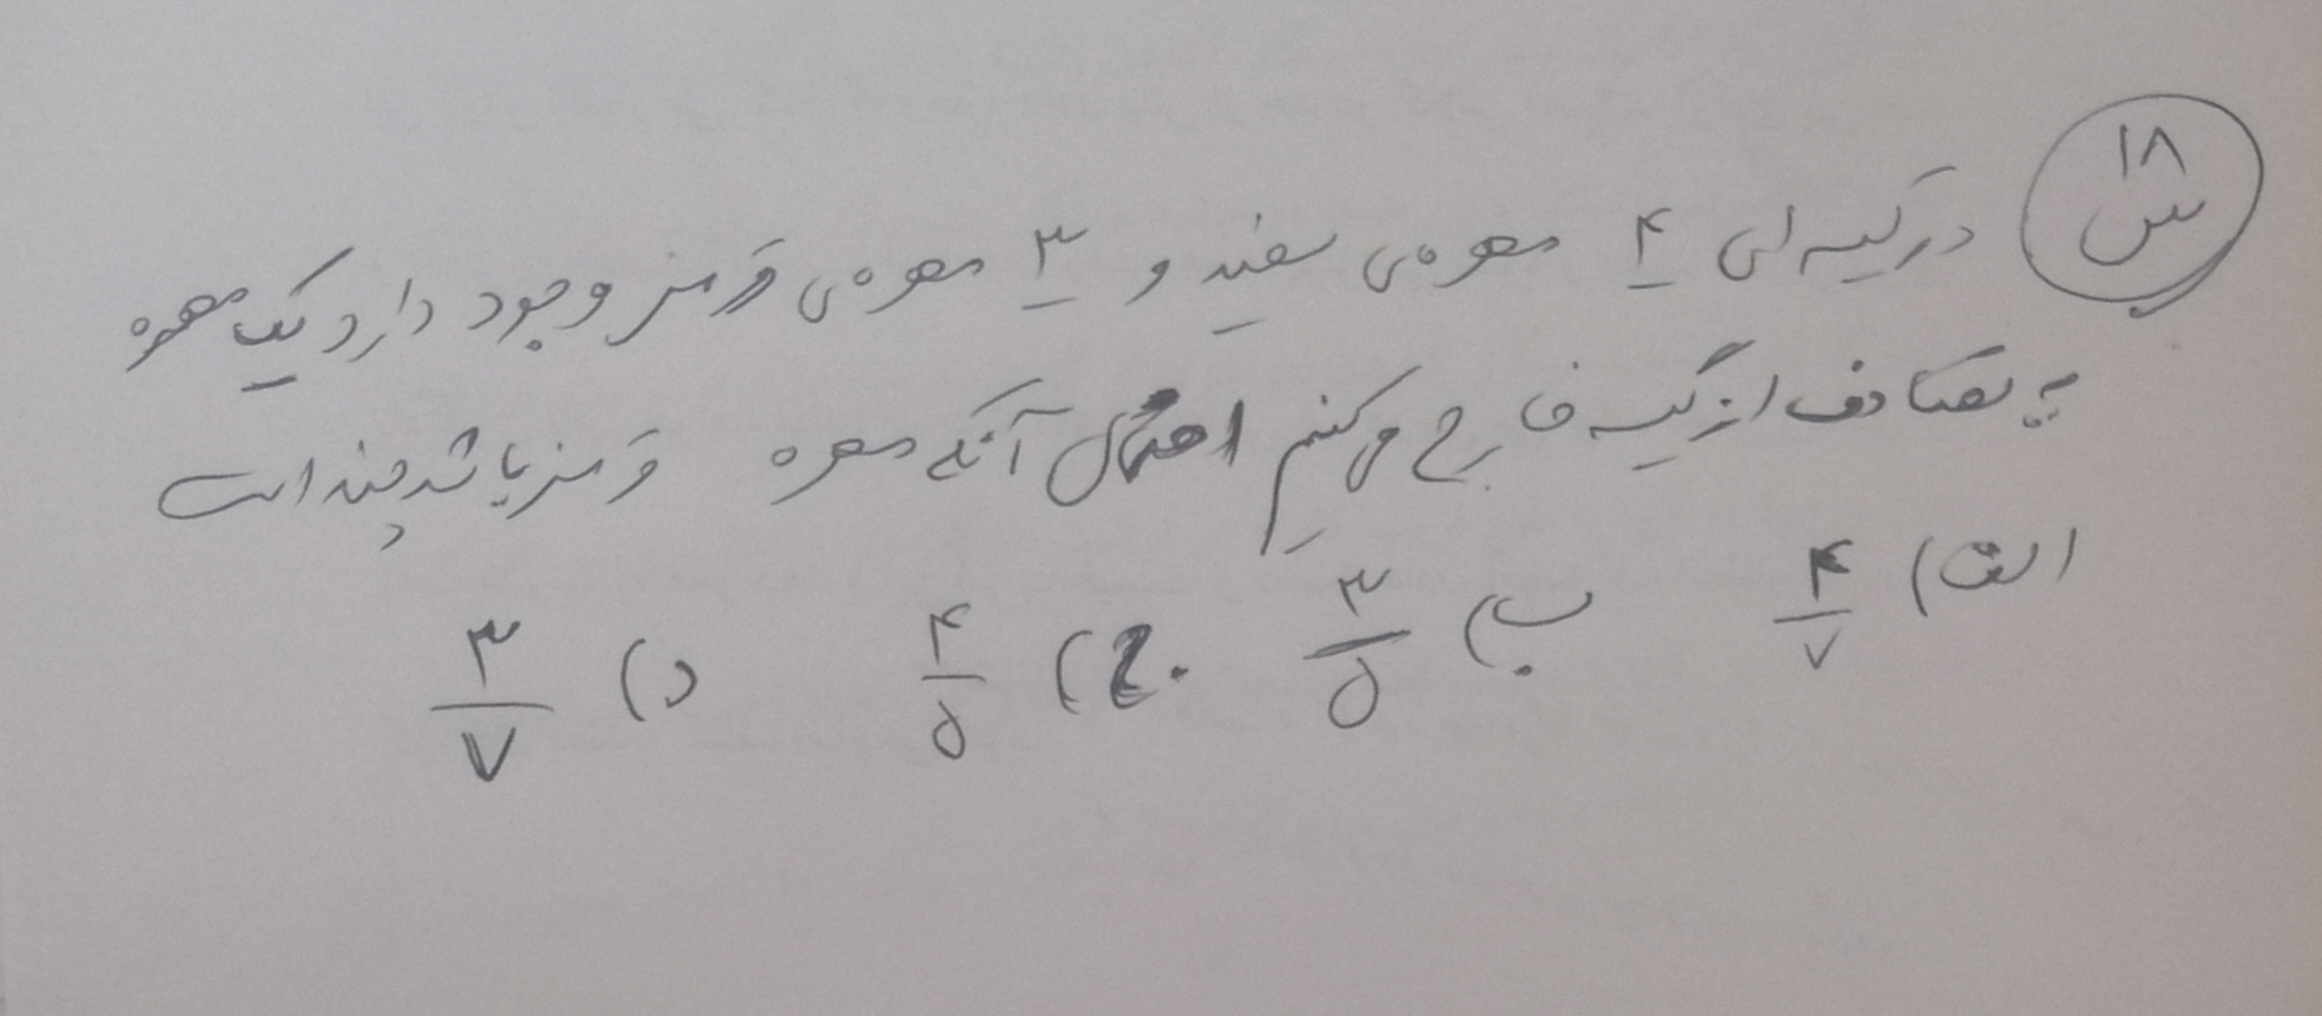 س ۱۸
در کیسه ای ۴ مهره ی سفید و ۳ مهره ی قرمز وجود دارد یک مهره
به تصادف از کیسه خارج می کنیم احتمال آنکه مهره قرمز باشد چند است
الف) ۴/۷ ب) ۳/۵ ج) ۴/۵ د) ۳/۷